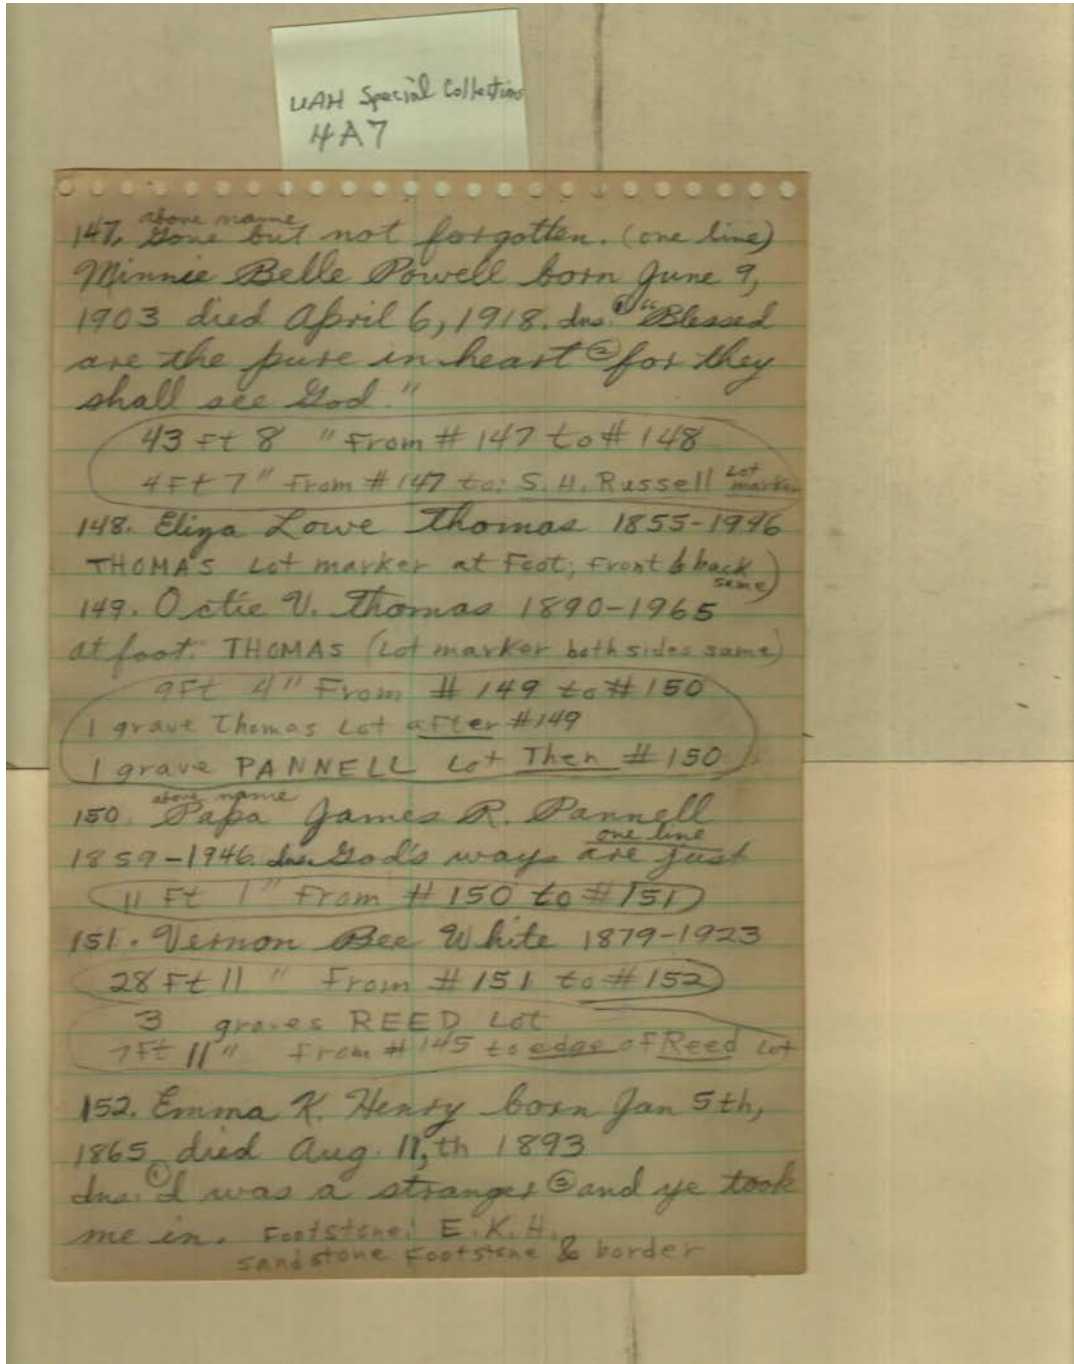 UAH Special Collections
4A7
above name
147. Gone but not forgotten. (one line)
Minnie Belle Powell born June 9,
1903 died April 6, 1918. Ins. ① "Blessed
are the pure in heart ② for they
shall see God."
43 Ft 8 " From # 147 to # 148
4 Ft 7" From # 147 to: S. H. Russell Lot marker
148. Eliza Lowe Thomas 1855-1946
THOMAS Lot marker at Foot; Front & back same)
149. Octie V. Thomas 1890-1965
at foot: THOMAS (Lot marker both sides same)
9 Ft 4" From # 149 to # 150
1 grave Thomas Lot after #149
1 grave PANNELL Lot Then # 150
above name
150. Papa James R. Pannell
one line
1859-1946. Ins. God's ways are just
11 Ft 1" From # 150 to # 151
151. Vernon Bee White 1879-1923
28 Ft 11 " From # 151 to # 152
3 graves REED Lot
7 Ft 11" From # 145 to edge of Reed Lot
152. Emma K. Henry born Jan 5th,
1865 died Aug. 11,th 1893
Ins. ① I was a stranger ② and ye took
me in. Footstone: E. K. H.
sandstone Footstone & border